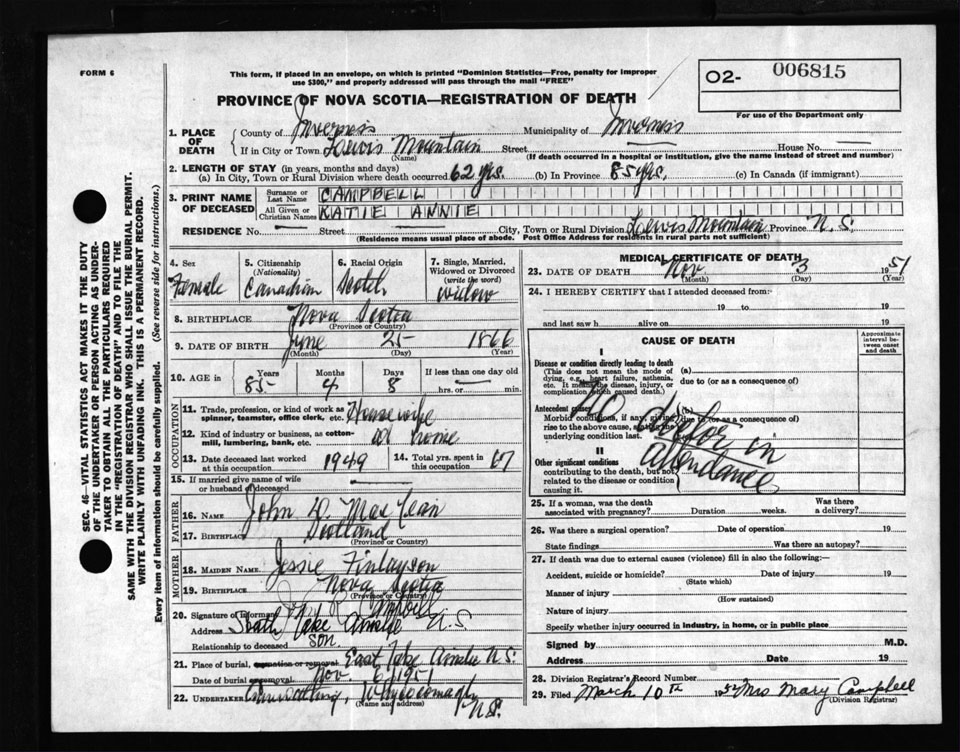 FORM 6
This form, if placed in an envelope, on which is printed "Dominion Statistics—Free, penalty for improper
use $300," and properly addressed will pass through the mail "FREE"
O2- 006815
For use of the Department only
PROVINCE OF NOVA SCOTIA—REGISTRATION OF DEATH
1. PLACE OF DEATH
County of Inverness Municipality of Inverness
If in City or Town Lewis Mountain Street — House No. —
(Name) (If death occurred in a hospital or institution, give the name instead of street and number)
2. LENGTH OF STAY (in years, months and days)
(a) In City, Town or Rural Division where death occurred 62 yrs. (b) In Province 85 yrs. (c) In Canada (if immigrant)
3. PRINT NAME OF DECEASED
Surname or Last Name CAMPBELL
All Given or Christian Names KATIE ANNIE
RESIDENCE No. — Street — City, Town or Rural Division Lewis Mountain Province N.S.
(Residence means usual place of abode. Post Office Address for residents in rural parts not sufficient)
4. Sex Female
5. Citizenship (Nationality) Canadian
6. Racial Origin Scotch
7. Single, Married, Widowed or Divorced (write the word) Widow
8. BIRTHPLACE Nova Scotia
(Province or Country)
9. DATE OF BIRTH June 25 1866
(Month) (Day) (Year)
10. AGE in Years 85 Months 4 Days 8 If less than one day old — hrs. or — min.
OCCUPATION
11. Trade, profession, or kind of work as spinner, teamster, office clerk, etc. Housewife
12. Kind of industry or business, as cotton-mill, lumbering, bank, etc. at home
13. Date deceased last worked at this occupation 1949
14. Total yrs. spent in this occupation 67
15. If married give name of wife or husband of deceased —
FATHER
16. NAME John D. MacLean
17. BIRTHPLACE Scotland
(Province or Country)
MOTHER
18. MAIDEN NAME Jessie Finlayson
19. BIRTHPLACE Nova Scotia
(Province or Country)
20. Signature of Informant Campbell
Address South Lake Ainslie N.S.
Relationship to deceased son.
21. Place of burial, cremation or removal East Lake Ainslie N.S.
Date of burial or removal Nov. 6, 1951
22. UNDERTAKER Whycocomagh, N.S.
(Name and address)
MEDICAL CERTIFICATE OF DEATH
23. DATE OF DEATH Nov. 3 1951
(Month) (Day) (Year)
24. I HEREBY CERTIFY that I attended deceased from:
19 to 19
and last saw h alive on 19
CAUSE OF DEATH
Approximate interval between onset and death
I
Disease or condition directly leading to death
(This does not mean the mode of dying, e.g., heart failure, asthenia, etc. It means the disease, injury, or complication which caused death.)
(a)
due to (or as a consequence of)
Antecedent causes
Morbid conditions, if any, giving rise to the above cause, stating the underlying condition last.
(b)
due to (or as a consequence of)
II
Other significant conditions
contributing to the death, but not related to the disease or condition causing it.
No doctor in
attendance
25. If a woman, was the death associated with pregnancy? Duration weeks. Was there a delivery?
26. Was there a surgical operation? Date of operation 19
State findings Was there an autopsy?
27. If death was due to external causes (violence) fill in also the following:—
Accident, suicide or homicide? Date of injury 19
(State which)
Manner of injury
(How sustained)
Nature of injury
Specify whether injury occurred in industry, in home, or in public place
Signed by M.D.
Address Date 19
28. Division Registrar's Record Number
29. Filed March 10th 1952 Mrs Mary Campbell
(Division Registrar)
SEC. 46—VITAL STATISTICS ACT MAKES IT THE DUTY
OF THE UNDERTAKER OR PERSON ACTING AS UNDER-
TAKER TO OBTAIN ALL THE PARTICULARS REQUIRED
IN THE "REGISTRATION OF DEATH" AND TO FILE THE
SAME WITH THE DIVISION REGISTRAR WHO SHALL ISSUE THE BURIAL PERMIT.
WRITE PLAINLY WITH UNFADING INK. THIS IS A PERMANENT RECORD.
Every item of information should be carefully supplied. (See reverse side for instructions.)